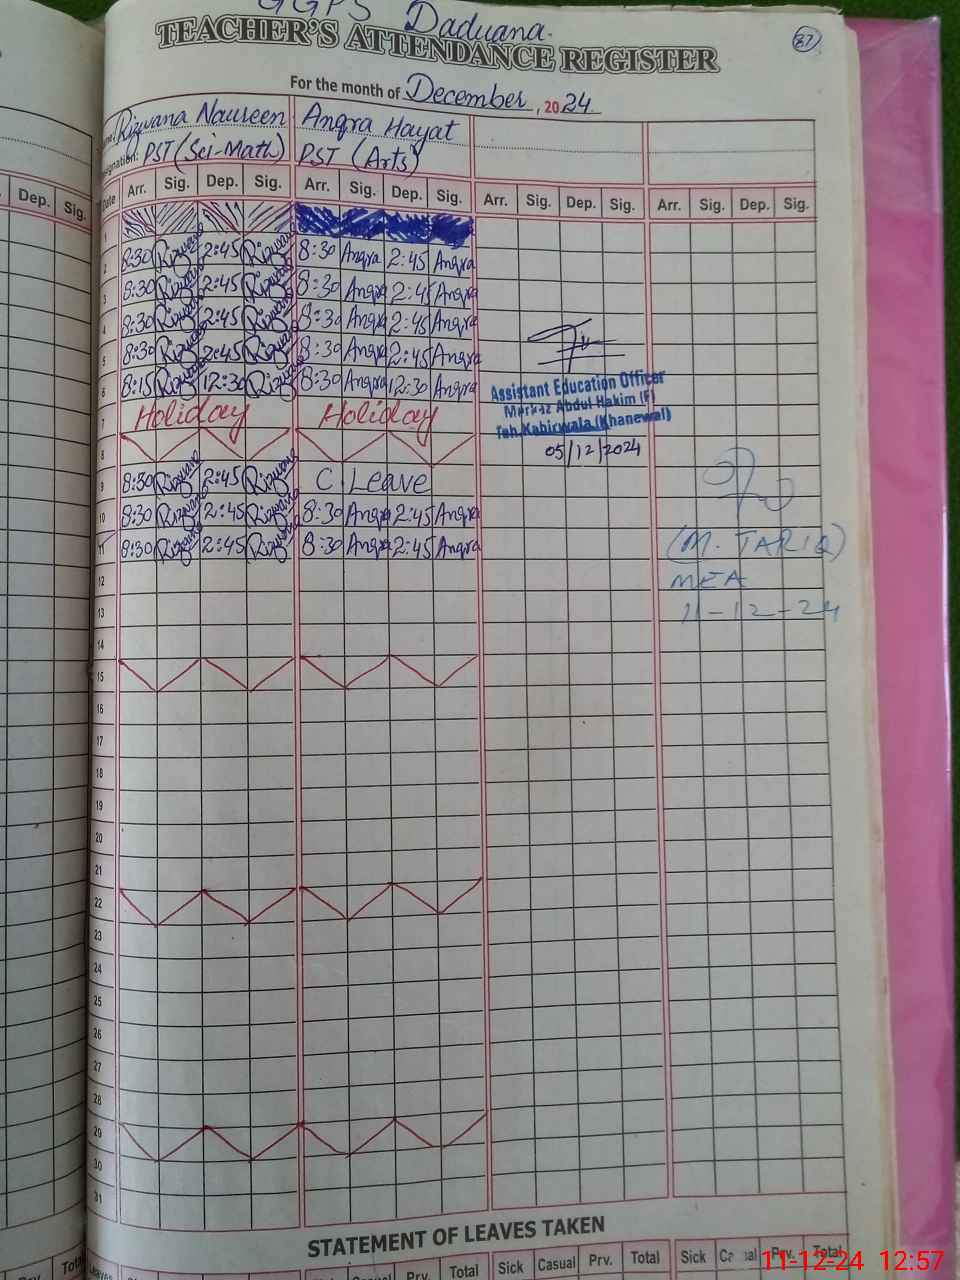 GGPS Daduana.
TEACHER'S ATTENDANCE REGISTER
87
For the month of December, 2024
Rizwana Naureen Anqra Hayat
Designation: PST (Sci-Math) PST (Arts)
Dep. Sig.
Date Arr. Sig. Dep. Sig. Arr. Sig. Dep. Sig. Arr. Sig. Dep. Sig. Arr. Sig. Dep. Sig.
1
2 8:30 Rizwana 2:45 Rizwana 8:30 Anqra 2:45 Anqra
3 8:30 Rizwana 2:45 Rizwana 8:30 Anqra 2:45 Anqra
4 8:30 Rizwana 2:45 Rizwana 8:30 Anqra 2:45 Anqra
5 8:30 Rizwana 2:45 Rizwana 8:30 Anqra 2:45 Anqra
6 8:15 Rizwana 12:30 Rizwana 8:30 Anqra 12:30 Anqra
Assistant Education Officer
Markaz Abdul Hakim (F)
Teh. Kabirwala (Khanewal)
05/12/2024
7 Holiday Holiday
8
9 8:30 Rizwana 2:45 Rizwana C. Leave
10 8:30 Rizwana 2:45 Rizwana 8:30 Anqra 2:45 Anqra
11 8:30 Rizwana 2:45 Rizwana 8:30 Anqra 2:45 Anqra
(M. TARIQ)
MEA
11-12-24
12
13
14
15
16
17
18
19
20
21
22
23
24
25
26
27
28
29
30
31
STATEMENT OF LEAVES TAKEN
Prv. Total Leaves Casual Prv. Total Sick Casual Prv. Total Sick Casual Prv. Total
11-12-24 12:57